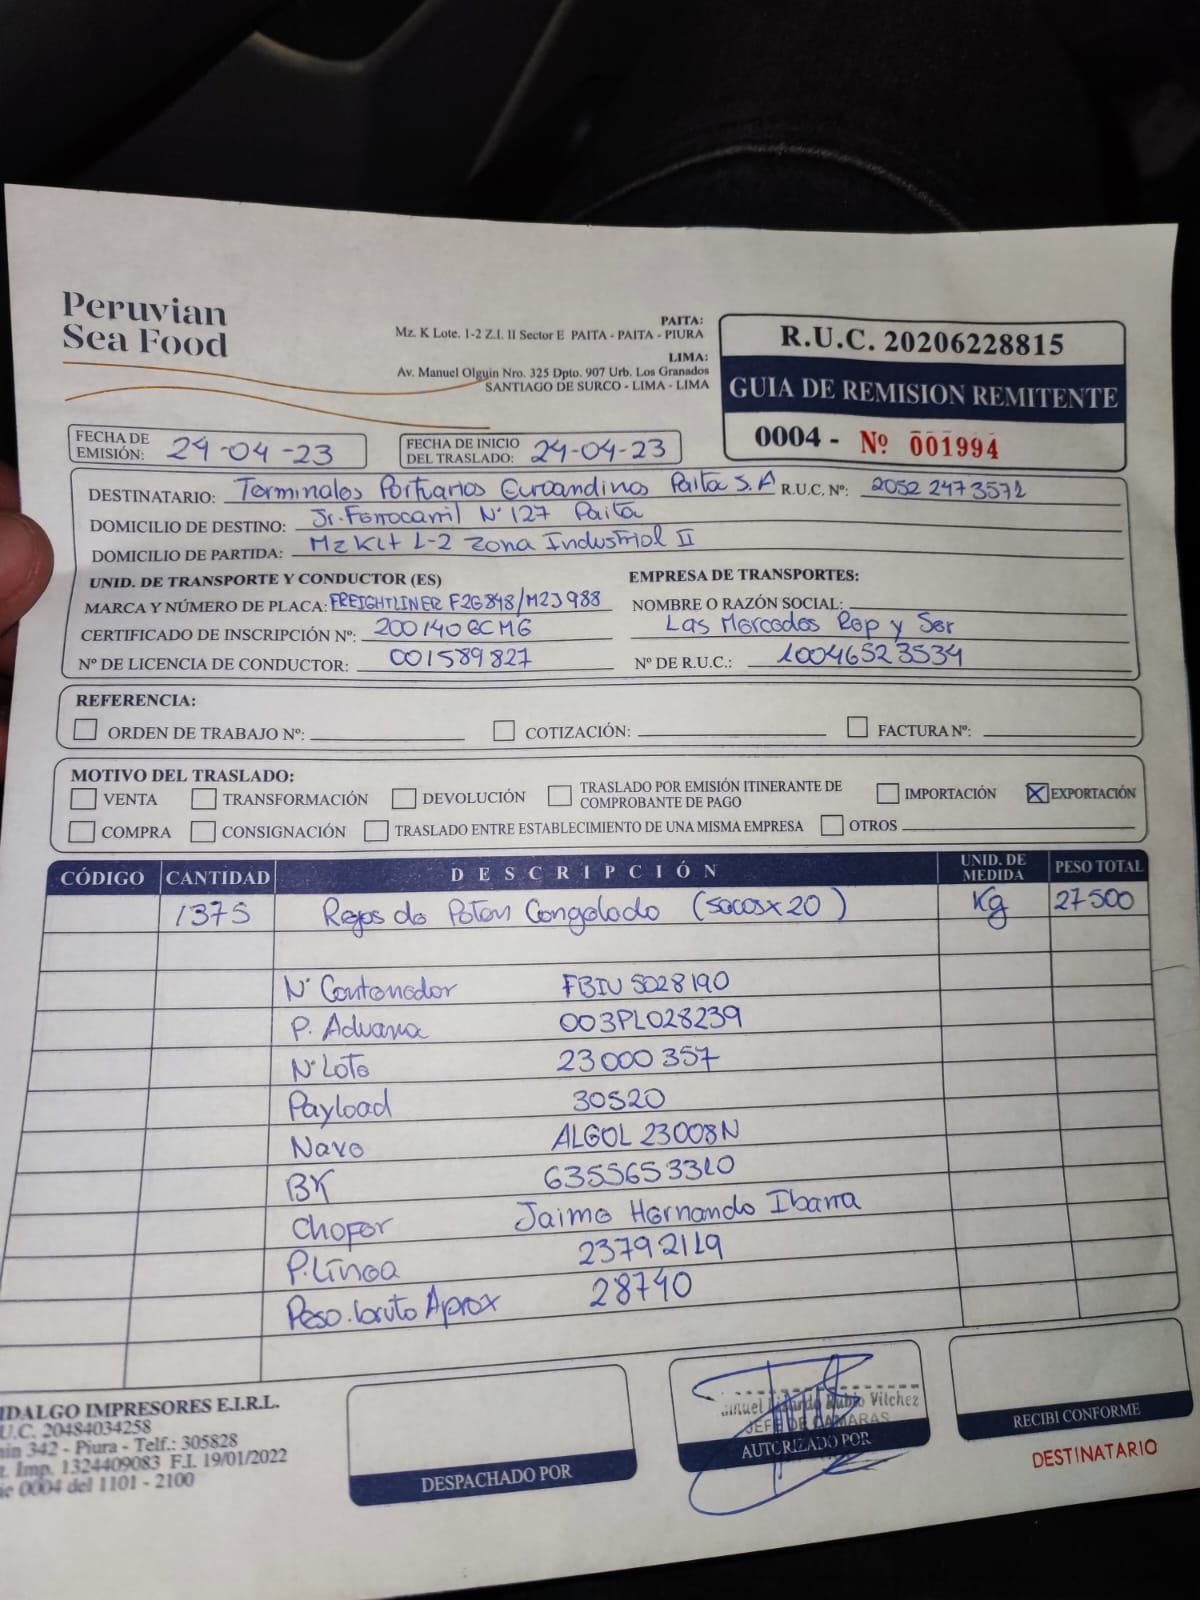 Peruvian
Sea Food
PAITA:
Mz. K Lote. 1-2 Z.I. II Sector E PAITA - PAITA - PIURA
LIMA:
Av. Manuel Olguin Nro. 325 Dpto. 907 Urb. Los Granados
SANTIAGO DE SURCO - LIMA - LIMA
R.U.C. 20206228815
GUIA DE REMISION REMITENTE
0004 - Nº 001994
FECHA DE EMISIÓN: 24-04-23
FECHA DE INICIO DEL TRASLADO: 24-04-23
DESTINATARIO: Terminales Portuarios Euroandinos Paita S.A R.U.C. Nº: 20522473571
DOMICILIO DE DESTINO: Jr. Ferrocarril N° 127 Paita
DOMICILIO DE PARTIDA: Mz K Lt 1-2 Zona Industrial II
UNID. DE TRANSPORTE Y CONDUCTOR (ES)
MARCA Y NÚMERO DE PLACA: FREIGHTLINER F2G848/M2J988
CERTIFICADO DE INSCRIPCIÓN Nº: 200140GCMG
Nº DE LICENCIA DE CONDUCTOR: 001589827
EMPRESA DE TRANSPORTES:
NOMBRE O RAZÓN SOCIAL:
Las Mercedes Rep y Ser
Nº DE R.U.C.: 10046523534
REFERENCIA:
ORDEN DE TRABAJO Nº: COTIZACIÓN: FACTURA Nº:
MOTIVO DEL TRASLADO:
VENTA TRANSFORMACIÓN DEVOLUCIÓN TRASLADO POR EMISIÓN ITINERANTE DE COMPROBANTE DE PAGO IMPORTACIÓN X EXPORTACIÓN
COMPRA CONSIGNACIÓN TRASLADO ENTRE ESTABLECIMIENTO DE UNA MISMA EMPRESA OTROS
CÓDIGO CANTIDAD DESCRIPCIÓN UNID. DE MEDIDA PESO TOTAL
1375 Rejos de Poton Congelado (sacos x 20) Kg 27500
N° Contenedor FBIU 5028190
P. Aduana 003PL028239
N° Lote 23000357
Payload 30520
Nave ALGOL 23008N
BK 6355653310
Chofer Jaime Hernando Ibarra
P. Línea 23792119
Peso bruto Aprox 28740
IDALGO IMPRESORES E.I.R.L.
U.C. 20484034258
342 - Piura - Telf.: 305828
Imp. 1324409083 F.I. 19/01/2022
0004 del 1101 - 2100
DESPACHADO POR
Rubio Vilchez
JEFE DE CAMARAS
AUTORIZADO POR
RECIBI CONFORME
DESTINATARIO